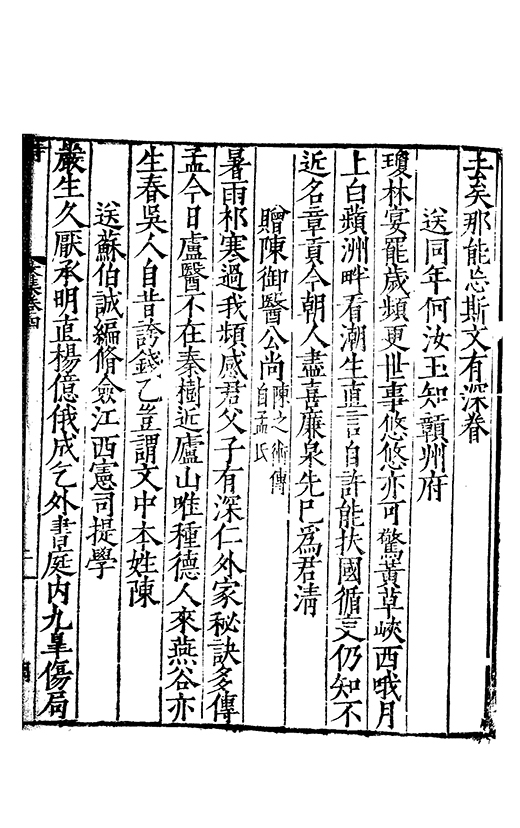 去矣那能忘斯文有深眷
送同年何汝玉知贛州府
瓊林宴罷歲頻更世事悠悠亦可驚黃草峽西哦月
上白蘋洲畔看潮生直言自許能扶國循吏仍知不
近名章貢今朝人盡喜廉泉先已為君清
贈陳御醫公尚陳之術傳自孟氏
暑雨祁寒過我頻感君父子有深仁外家秘訣多傳
孟今日盧醫不在秦樹近廬山唯種德人來燕谷亦
生春吳人自昔誇錢乙豈謂文中本姓陳
送蘇伯誠編脩僉江西憲司提學
嚴生久厭承明直楊億俄成乞外書庭內九皋傷局